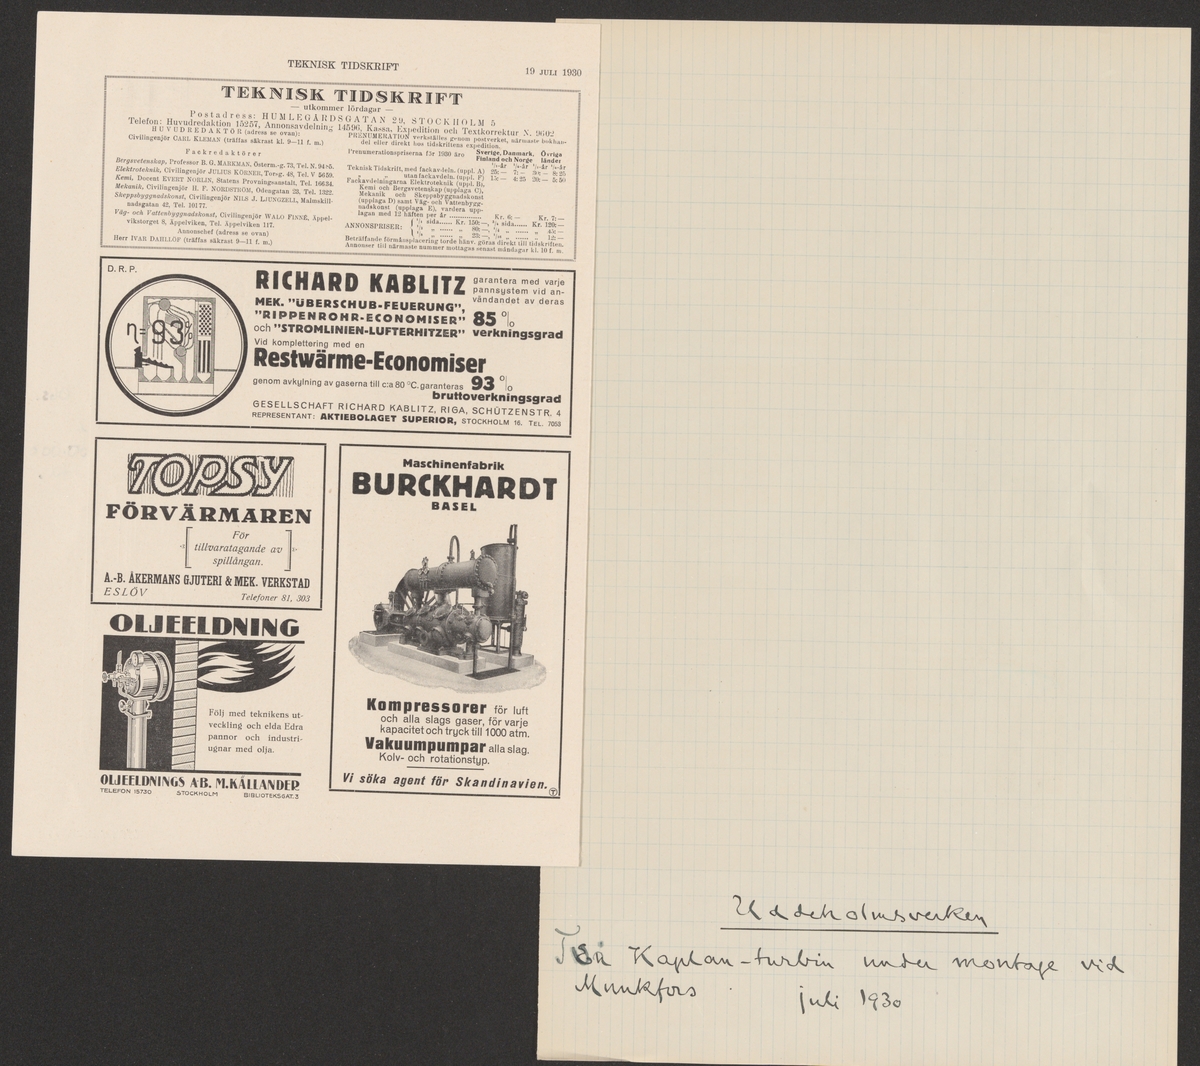 TEKNISK TIDSKRIFT
19 JULI 1930
TEKNISK TIDSKRIFT
— utkommer lördagar —
Postadress: HUMLEGÅRDSGATAN 29, STOCKHOLM 5
Telefon: Huvudredaktion 15257, Annonsavdelning 14596, Kassa, Expedition och Textkorrektur N. 9602
HUVUDREDAKTÖR (adress se ovan):
Civilingenjör CARL KLEMAN (träffas säkrast kl. 9—11 f. m.)
Fackredaktörer
Bergsvetenskap, Professor B. G. MARKMAN, Österm.-g. 73, Tel. N. 9475.
Elektroteknik, Civilingenjör JULIUS KÖRNER, Torsg. 48, Tel. V 5659.
Kemi, Docent EVERT NORLIN, Statens Provningsanstalt, Tel. 16634.
Mekanik, Civilingenjör H. F. NORDSTRÖM, Odengatan 23, Tel. 1322.
Skeppsbyggnadskonst, Civilingenjör NILS J. LJUNGZELL, Malmskill-
nadsgatan 42, Tel. 10177.
Väg- och Vattenbyggnadskonst, Civilingenjör WALO FINNÉ, Äppel-
vikstorget 8, Äppelviken, Tel. Äppelviken 117.
Annonschef (adress se ovan)
Herr IVAR DAHLLÖF (träffas säkrast 9—11 f. m.)
PRENUMERATION verkställes genom postverket, närmaste bokhan-
del eller direkt hos tidskriftens expedition.
Prenumerationspriserna för 1930 äro
Sverige, Danmark, Finland och Norge
Övriga länder
1/1-år 1/4-år 1/1-år 1/4-år
Teknisk Tidskrift, med fackavdeln. (uppl. A) 25:— 7:— 30:— 8:25
„ „ utan fackavdeln. (uppl. F) 15:— 4:25 20:— 5:50
Fackavdelningarna Elektroteknik (uppl. B),
Kemi och Bergsvetenskap (upplaga C),
Mekanik och Skeppsbyggnadskonst
(upplaga D) samt Väg- och Vattenbygg-
nadskonst (upplaga E), vardera upp-
lagan med 12 häften per år Kr. 6:— Kr. 7:—
ANNONSPRISER: 1/1 sida Kr. 150:—, 3/4 sida Kr. 120:—
Beträffande förmånsplacering torde hänv. göras direkt till tidskriften.
Annonser till närmaste nummer mottagas senast måndagar kl. 10 f. m.
D. R. P.
η=93%
RICHARD KABLITZ
MEK. "ÜBERSCHUB-FEUERUNG",
"RIPPENROHR-ECONOMISER"
och "STROMLINIEN-LUFTERHITZER"
garantera med varje
pannsystem vid an-
vändandet av deras
85 %
verkningsgrad
Vid komplettering med en
Restwärme-Economiser
genom avkylning av gaserna till c:a 80 °C. garanteras 93 %
bruttoverkningsgrad
GESELLSCHAFT RICHARD KABLITZ, RIGA, SCHÜTZENSTR. 4
REPRESENTANT: AKTIEBOLAGET SUPERIOR, STOCKHOLM 16. TEL. 7053
TOPSY
FÖRVÄRMAREN
För
tillvaratagande av
spillångan.
A.-B. ÅKERMANS GJUTERI & MEK. VERKSTAD
ESLÖV
Telefoner 81, 303
OLJEELDNING
Följ med teknikens ut-
veckling och elda Edra
pannor och industri-
ugnar med olja.
OLJEELDNINGS A-B. M. KÅLLANDER
TELEFON 15730 STOCKHOLM BIBLIOTEKSGAT. 3
Maschinenfabrik
BURCKHARDT
BASEL
Kompressorer för luft
och alla slags gaser, för varje
kapacitet och tryck till 1000 atm.
Vakuumpumpar alla slag.
Kolv- och rotationstyp.
Vi söka agent för Skandinavien.
T
Uddeholmsverken
Kaplan-turbin under montage vid
Munkfors juli 1930